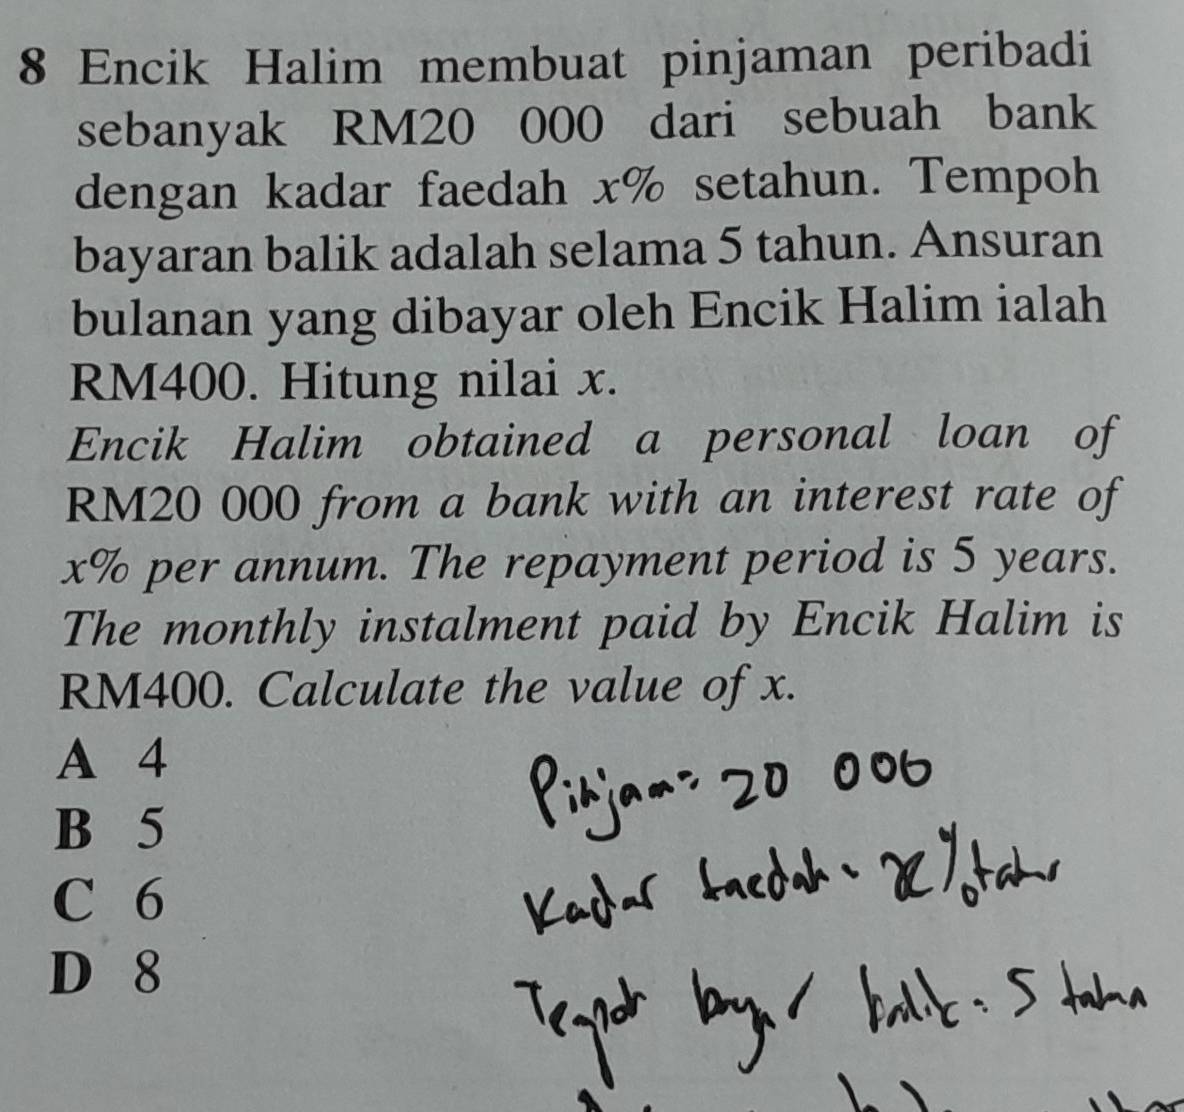 8 Encik Halim membuat pinjaman peribadi
sebanyak RM20 000 dari sebuah bank
dengan kadar faedah x% setahun. Tempoh
bayaran balik adalah selama 5 tahun. Ansuran
bulanan yang dibayar oleh Encik Halim ialah
RM400. Hitung nilai x.
Encik Halim obtained a personal loan of
RM20 000 from a bank with an interest rate of
x% per annum. The repayment period is 5 years.
The monthly instalment paid by Encik Halim is
RM400. Calculate the value of x.
A 4
B 5
C 6
D 8
Pinjam = 20 000
Kadar faedah = x%
balik = 5 tahun